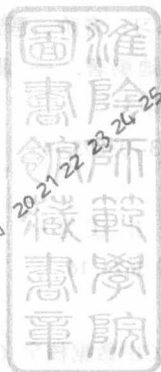 淮陰師範學院
圖書館藏書章
20 21 22 23 24 25